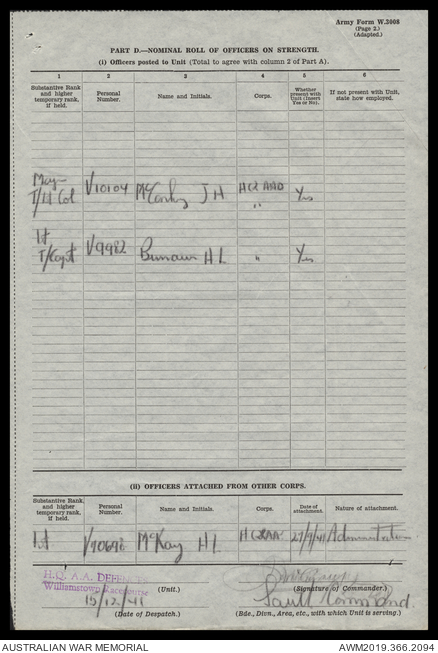 Army Form W.3008
(Page 2.)
(Adapted.)
PART D.—NOMINAL ROLL OF OFFICERS ON STRENGTH.
(i) Officers posted to Unit (Total to agree with column 2 of Part A).
1 2 3 4 5 6
Substantive Rank and higher temporary rank, if held. Personal Number. Name and Initials. Corps. Whether present with Unit (Insert Yes or No). If not present with Unit, state how employed.
Major V10104 J H HQ AAD
T/Lt Col " Yes
Lt V9982 H L " Yes
T/Capt
(ii) OFFICERS ATTACHED FROM OTHER CORPS.
Substantive Rank and higher temporary rank, if held. Personal Number. Name and Initials. Corps. Date of attachment. Nature of attachment.
Lt McKay H L 27/9/41 Administration
H.Q. A.A. DEFENCES
Williamstown Racecourse
(Unit.) (Signature of Commander.)
15/12/41 South Command.
(Date of Despatch.) (Bde., Divn., Area, etc., with which Unit is serving.)
AUSTRALIAN WAR MEMORIAL AWM2019.366.2094